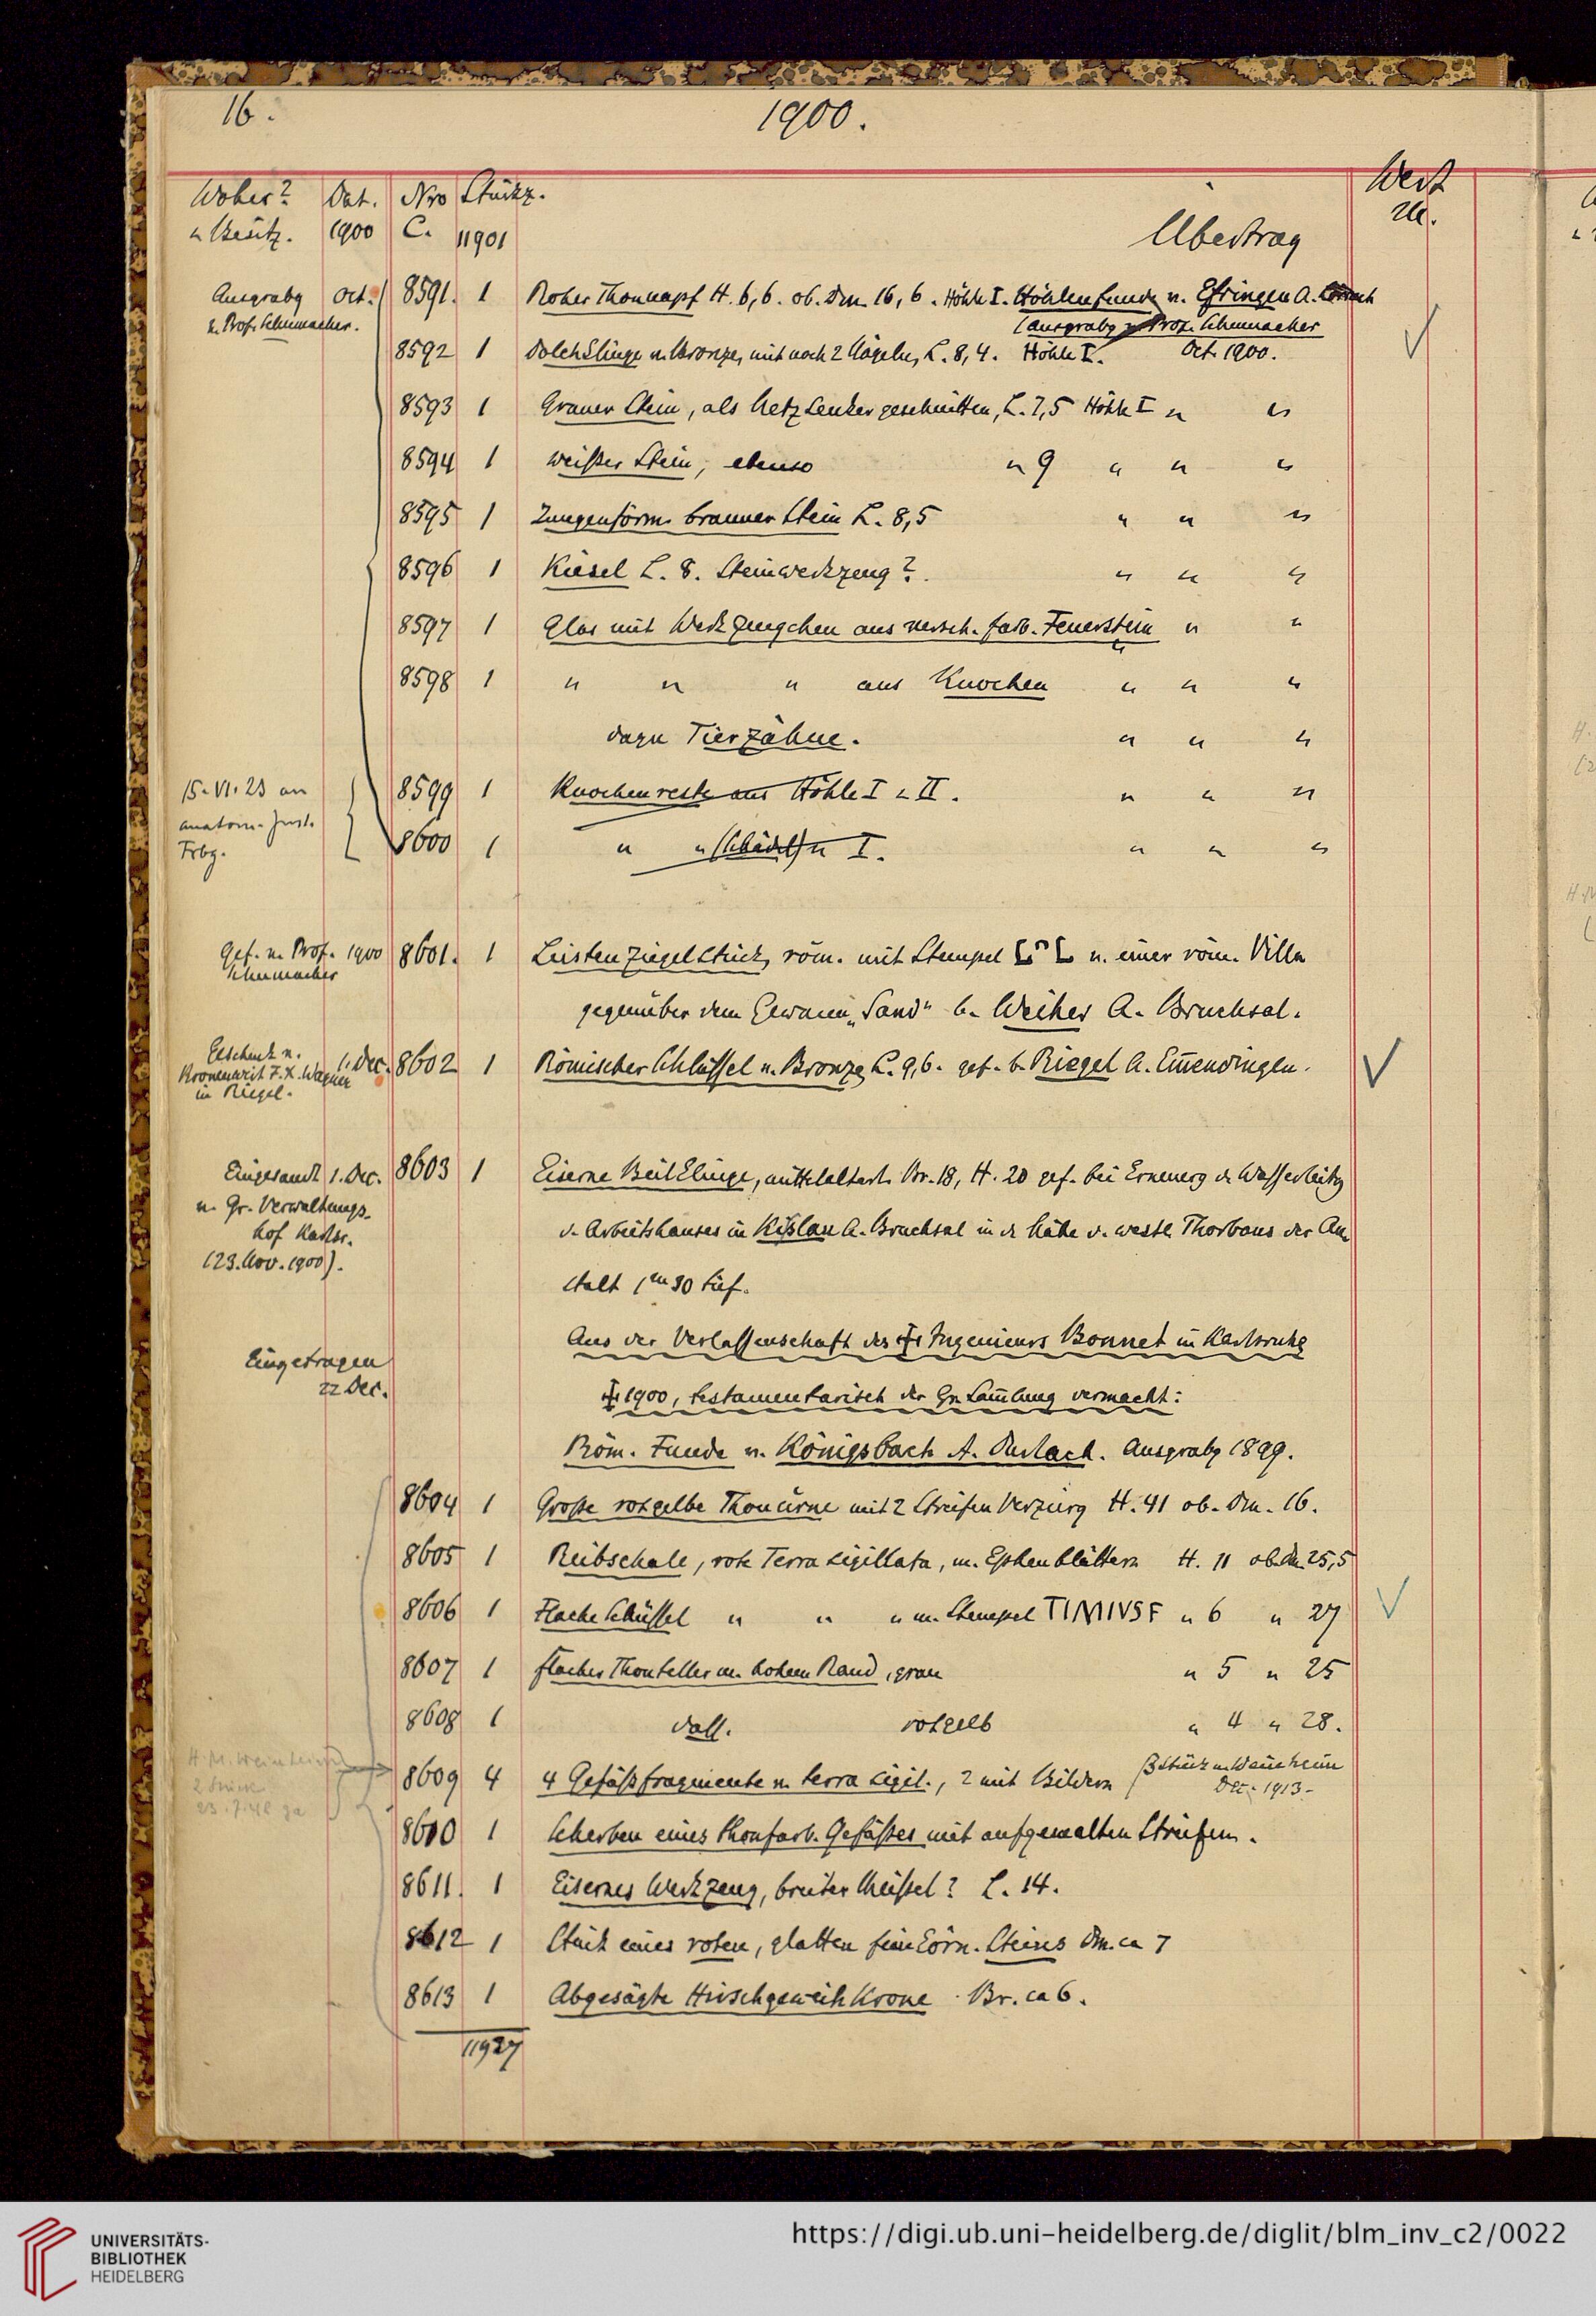 16.
1900.
Woher? Dat. Nro Stückz. Wert
u Besitz. 1900 C. 11901 Übertrag M.
Ausgrabg Oct. 8591. 1 Roher Thonnapf H. 6,6. ob. Dm. 16,6. Höhle I. Höhlenfunde v. Efringen A. Lörrach
v. Prof. Schumacher. (Ausgrabg v. Prof. Schumacher
8592 1 Dolchklinge v. Bronze, mit noch 2 Nägeln, L. 8,4. Höhle I. Oct. 1900.
8593 1 Grauer Stein, als Netzsenker geschnitten, L. 7,5 Höhle I " "
8594 1 weißer Stein, ebenso " 9 " " "
8595 1 Zungenförm. brauner Stein L. 8,5 " " "
8596 1 Kiesel L. 8. Steinwerkzeug? " " "
8597 1 Glas mit Werkzeugchen aus versch. farb. Feuerstein " " "
8598 1 " " " aus Knochen " " "
dazu Tierzähne. " " "
15. VI. 23 an 8599 1 Knochenreste aus Höhle I u II. " " "
anatom. Inst.
Frbg. 8600 1 " " (Schädel) " I. " " "
Gef. v. Prof. 1900 8601. 1 Leistenziegelstück, röm. mit Stempel v. einer röm. Villa
Schumacher
gegenüber dem Gewann "Sand" b. Weiher A. Bruchsal.
Geschenk v. 1. Dec. 8602 1 Römischer Schlüssel v. Bronze, L. 9,6. gef. b. Riegel A. Em̄endingen.
Kronenwirt F. X. Wagner
in Riegel.
Eingesandt 1. Dec. 8603 1 Eiserne Beilklinge, mittelalterl. Br. 18, H. 20 gef. bei Erneuerg d. Wasserleitg
v. Gr. Verwaltungs-
hof Karlsr. d. Arbeitshauses in Kißlau A. Bruchsal in d. Nähe d. westl. Thorbaus der An-
(23. Nov. 1900).
stalt 1m 30 tief.
Aus der Verlassenschaft des † Ingenieurs Bonnet in Karlsruhe
Eingetragen
22 Dec. † 1900, testamentarisch der Gr. Sam̄lung vermacht:
Röm. Funde v. Königsbach A. Durlach. Ausgrabg 1899.
8604 1 Große rotgelbe Thonurne mit 2 Streifen Verzierg H. 41 ob. Dm. 16.
8605 1 Reibschale, rote Terra sigillata, m. Epheublättern H. 11 ob. Dm 25,5
8606 1 Flache Schüssel " " " m. Stempel TIMIVSF " 6 " 27
8607 1 flacher Thonteller m. hohem Rand, grau " 5 " 25
8608 1 dass. rotgelb " 4 " 28.
H. M. Weinheim
2 Stück
23.7.48 8609 4 4 Gefäßfragmente v. terra sigil., 2 mit Bildern (3 Stück n. Weinheim
Dez. 1913.
8610 1 Scherben eines thonfarb. Gefäßes mit aufgemalten Streifen.
8611. 1 Eisernes Werkzeug, breiter Meißel? L. 14.
8612 1 Stück eines roten, glatten feinkörn. Steines Dm. ca 7
8613 1 Abgesägte Hirschgeweihkrone Br. ca 6.
11927
UNIVERSITÄTS-
BIBLIOTHEK
HEIDELBERG
https://digi.ub.uni-heidelberg.de/diglit/blm_inv_c2/0022